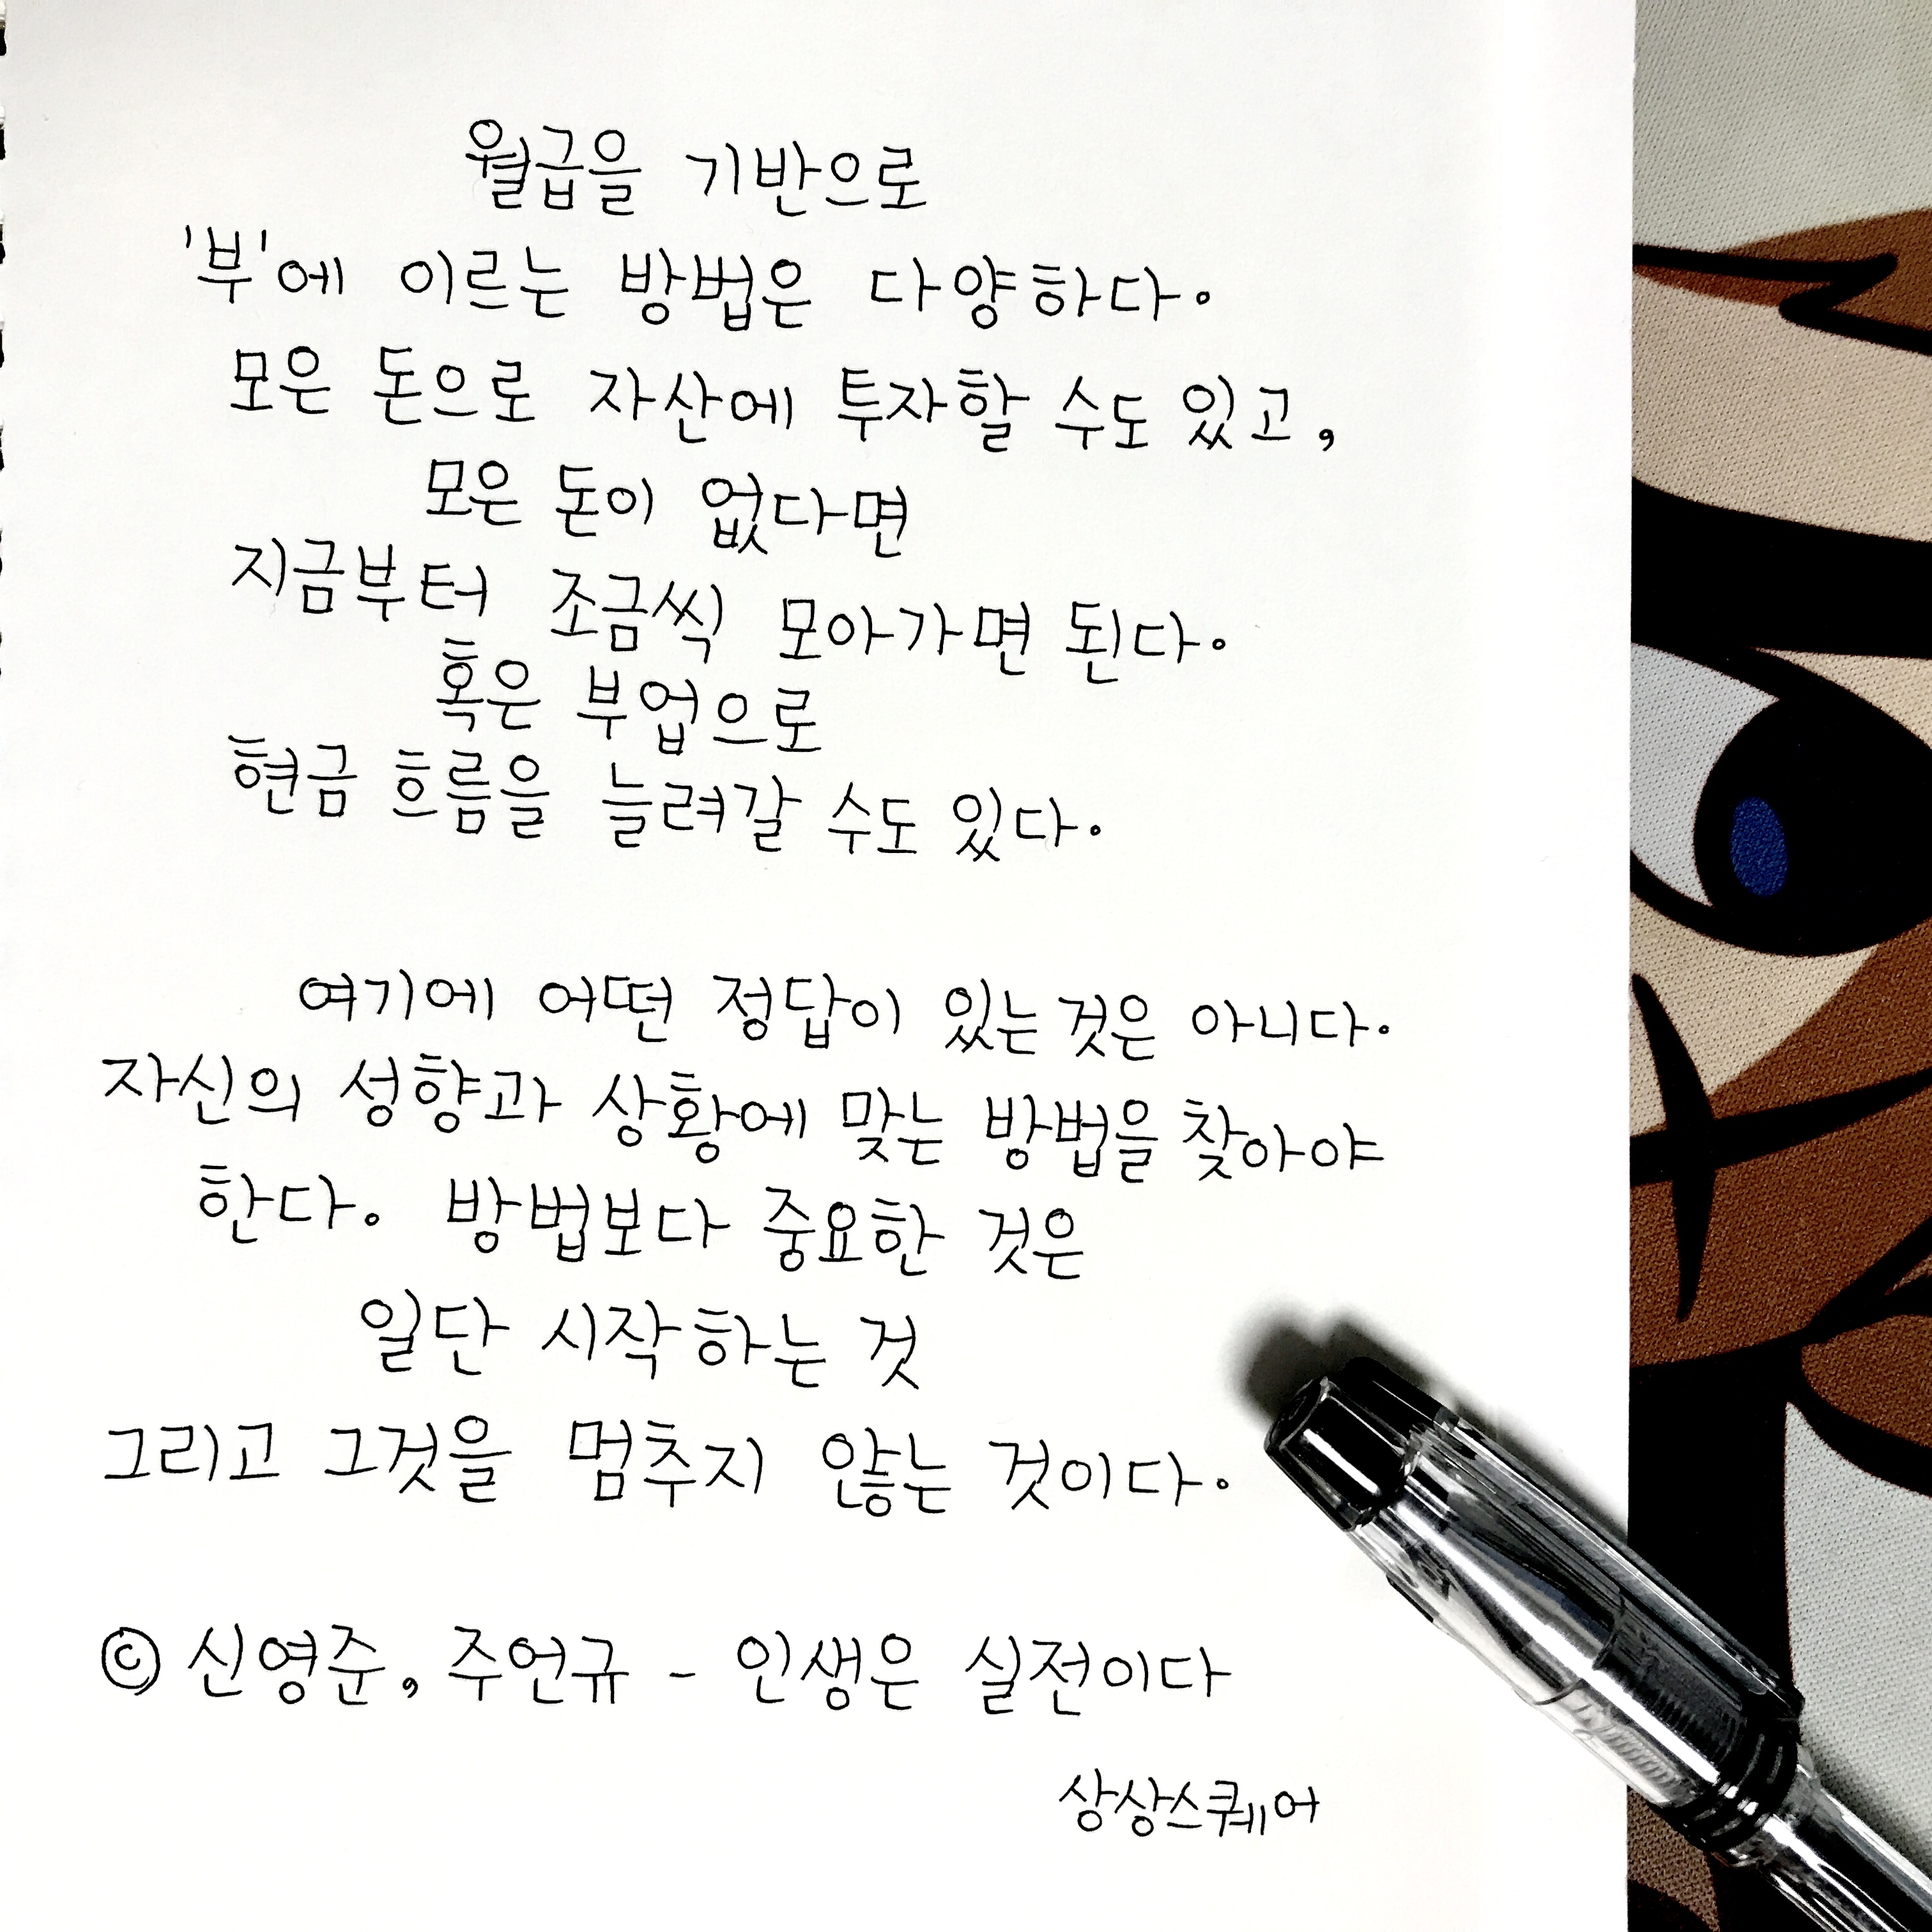 월급을 기반으로
'부'에 이르는 방법은 다양하다.
모은 돈으로 자산에 투자할 수도 있고,
모은 돈이 없다면
지금부터 조금씩 모아가면 된다.
혹은 부업으로
현금 흐름을 늘려갈 수도 있다.
여기에 어떤 정답이 있는 것은 아니다.
자신의 성향과 상황에 맞는 방법을 찾아야
한다. 방법보다 중요한 것은
일단 시작하는 것
그리고 그것을 멈추지 않는 것이다.
© 신영준, 주언규 - 인생은 실전이다
상상스퀘어